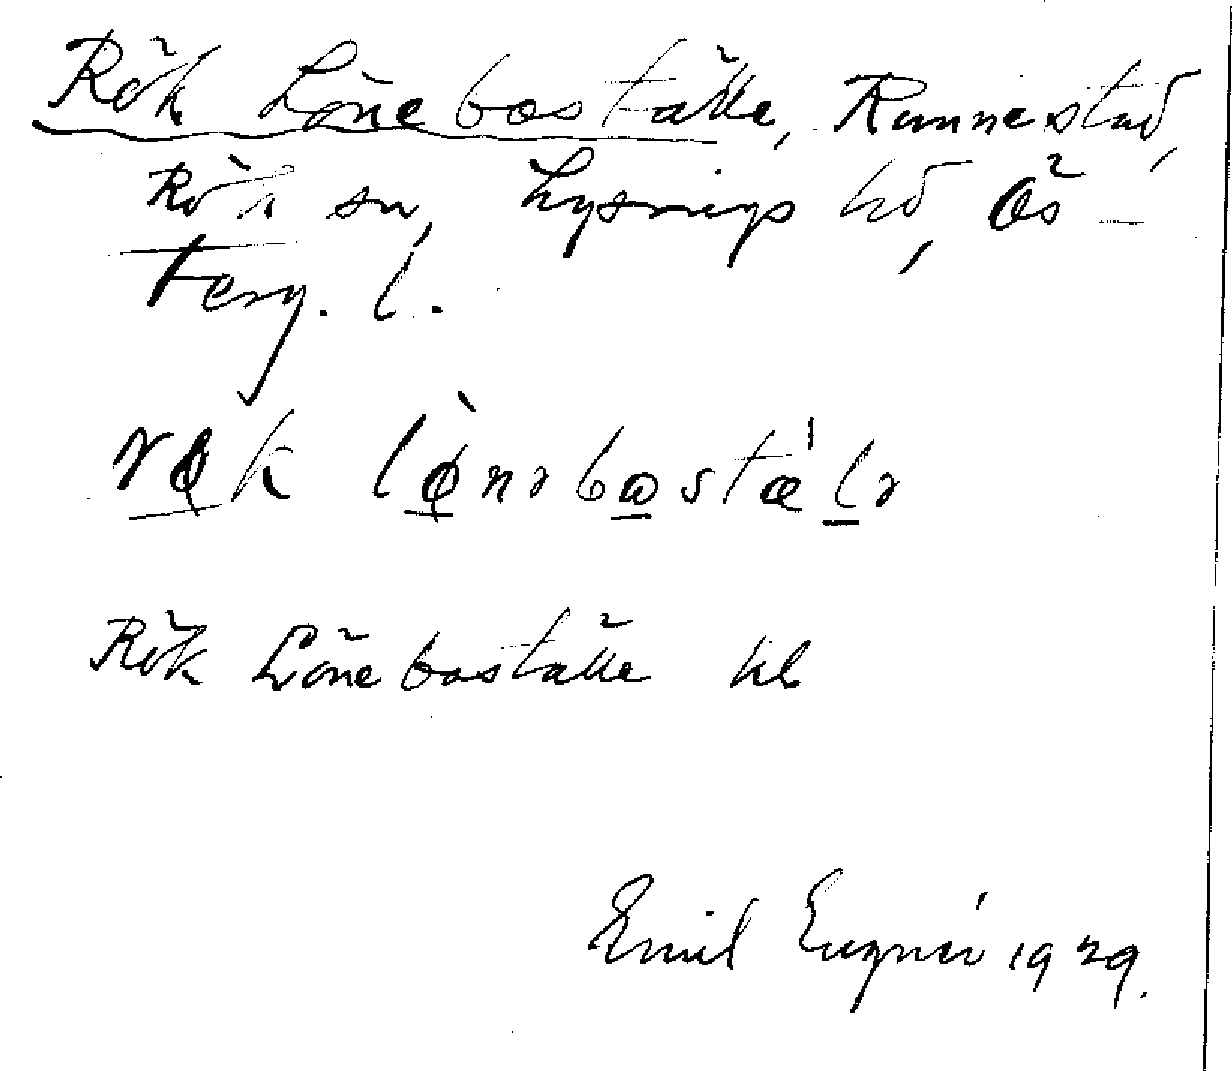 Rök Löneboställe, Runnestad,
Röks sn, Lysings hd, Ös-
terg. l.
røk lø̀nəbωstæ̍lə
Rök Löneboställe kl
Emil 1929.